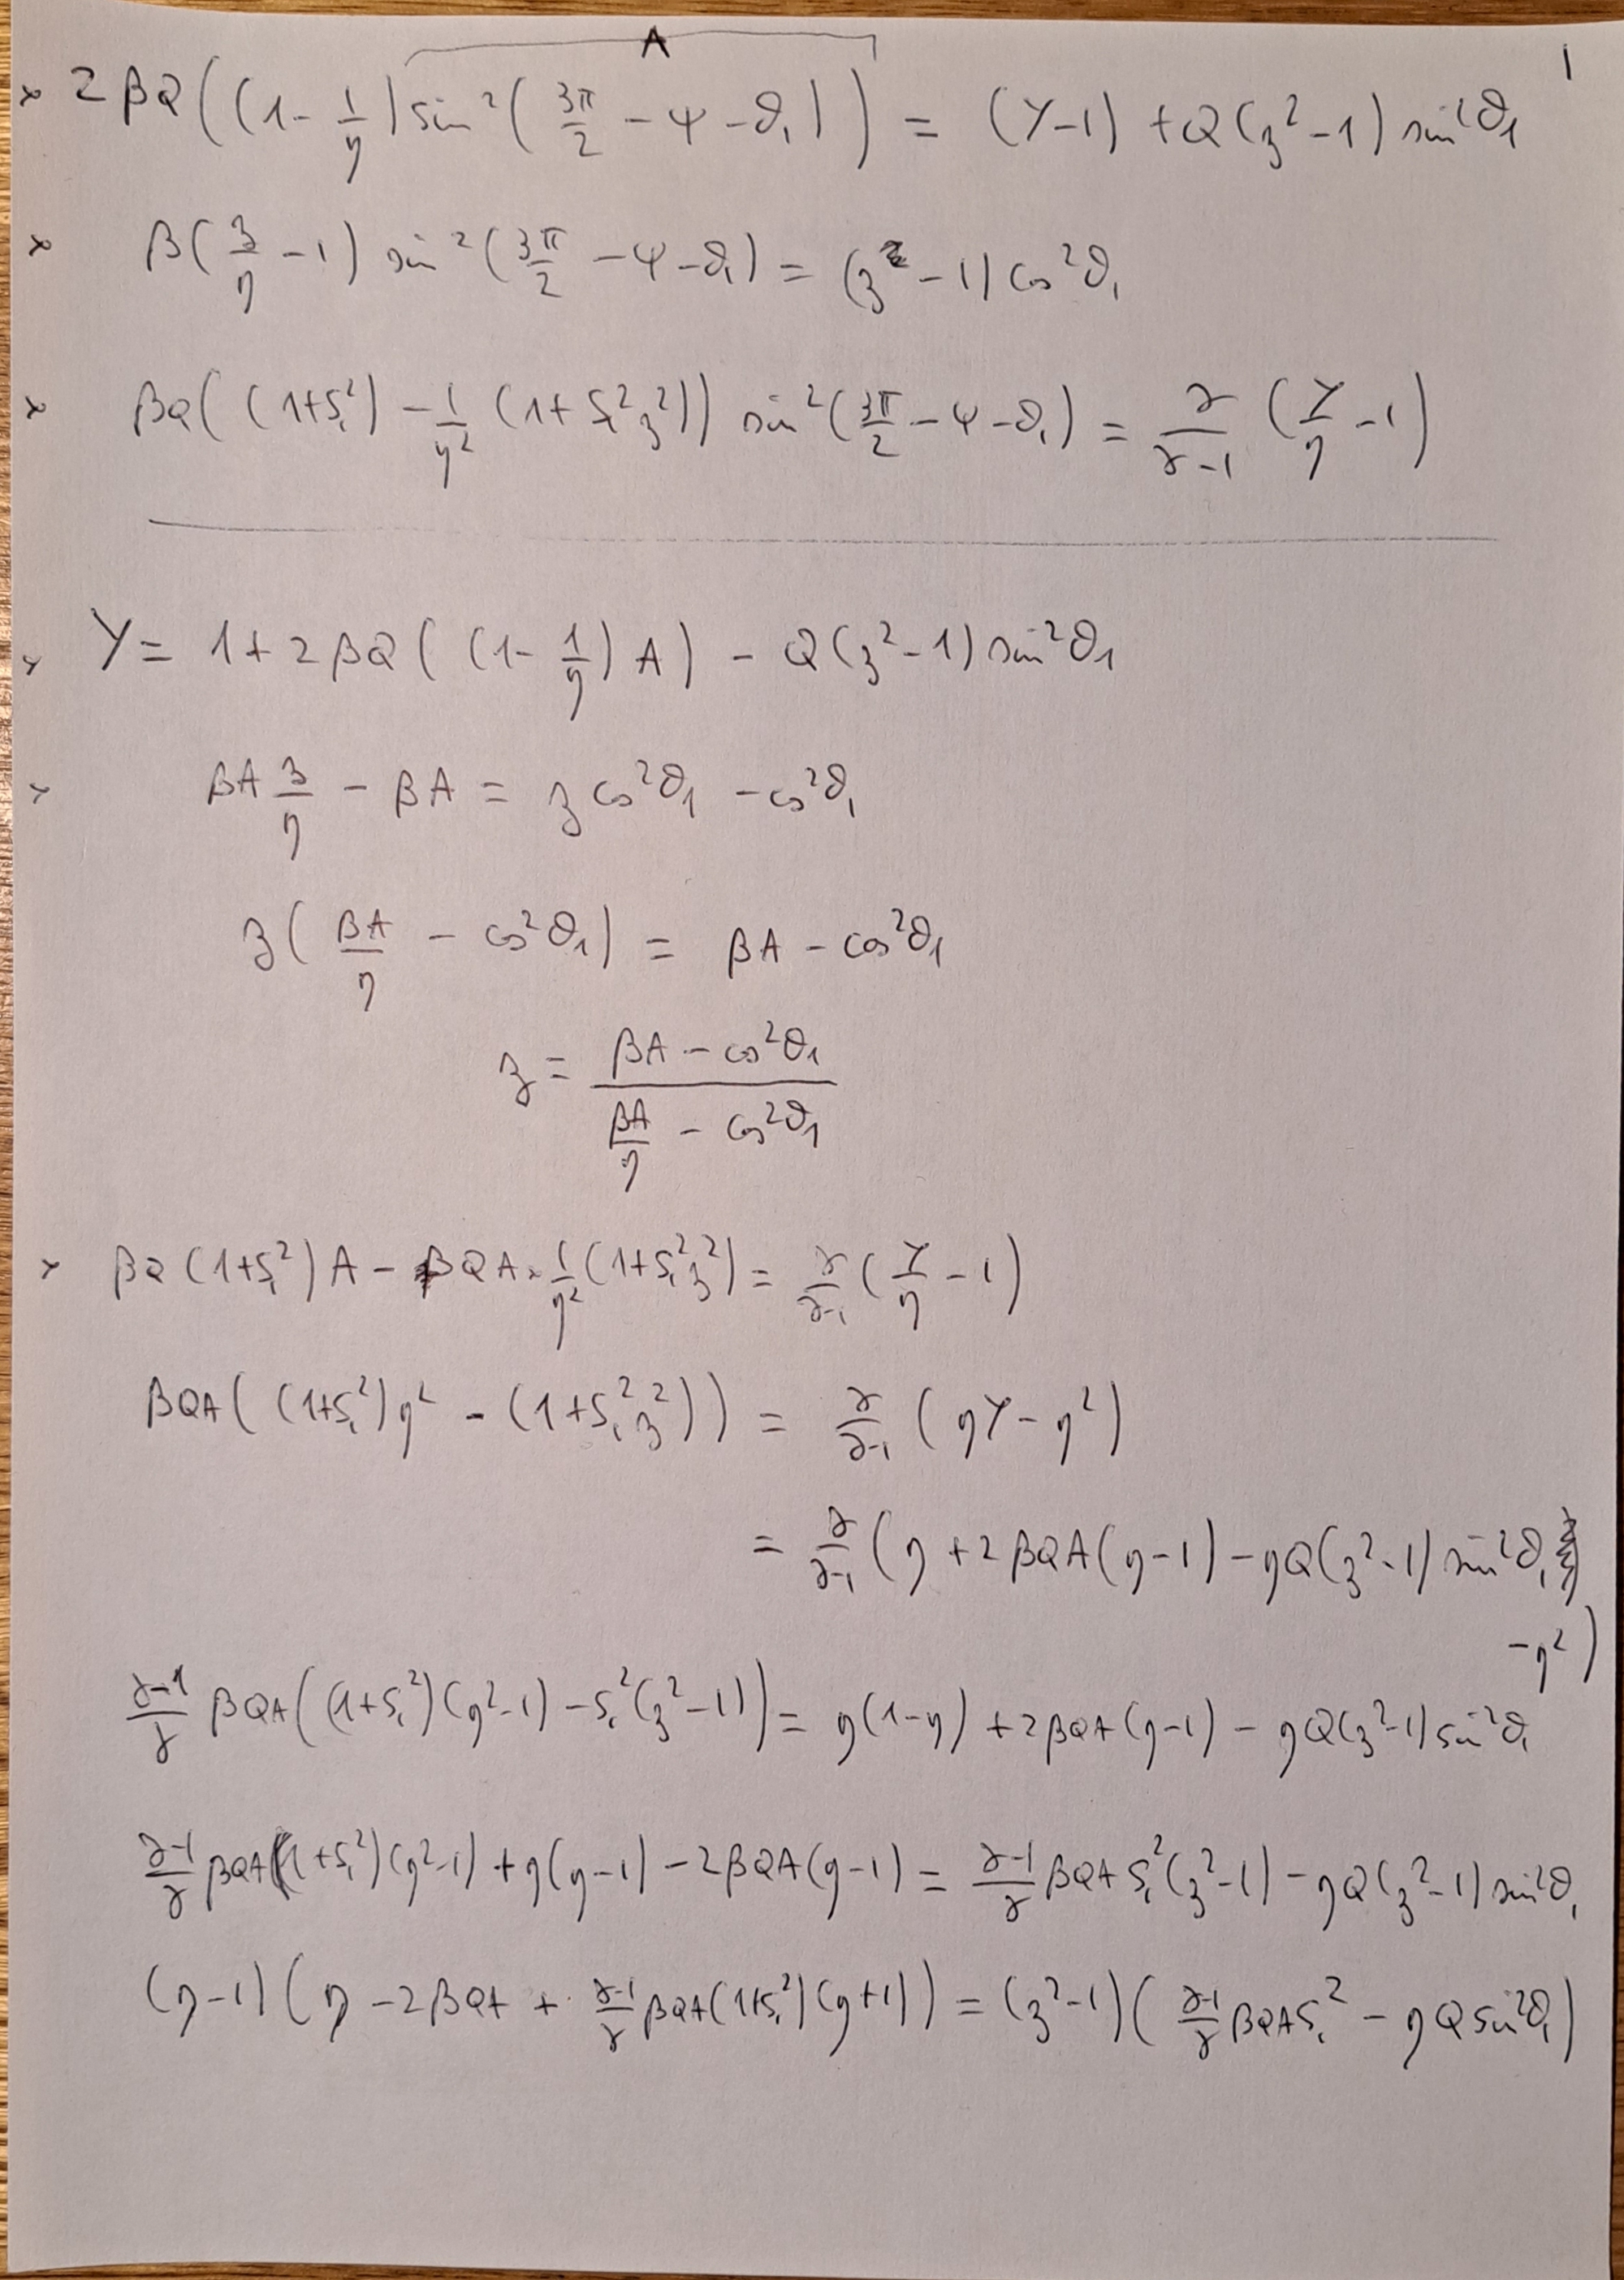 A
1
× 2βQ((1 - 1/η) sin²(3π/2 - ψ - ϑ₁)) = (Y-1) + Q(z²-1) sin²ϑ₁
× β(z/η - 1) sin²(3π/2 - ψ - ϑ₁) = (z - 1) cos²ϑ₁
× βQ((1+S₁²) - 1/η² (1+S₁²z²)) sin²(3π/2 - ψ - ϑ₁) = γ/(γ-1) (Y/η - 1)
× Y = 1 + 2βQ((1 - 1/η) A) - Q(z²-1) sin²ϑ₁
× βA z/η - βA = z cos²ϑ₁ - cos²ϑ₁
z(βA/η - cos²ϑ₁) = βA - cos²ϑ₁
z = (βA - cos²ϑ₁)/(βA/η - cos²ϑ₁)
× βQ(1+S₁²)A - βQA · 1/η² (1+S₁²z²) = γ/(γ-1) (Y/η - 1)
βQA((1+S₁²)η² - (1+S₁²z²)) = γ/(γ-1) (ηY - η²)
= γ/(γ-1) (η + 2βQA(η-1) - ηQ(z²-1) sin²ϑ₁
- η²)
(γ-1)/γ βQA((1+S₁²)(η²-1) - S₁²(z²-1)) = η(1-η) + 2βQA(η-1) - ηQ(z²-1) sin²ϑ₁
(γ-1)/γ βQA(1+S₁²)(η²-1) + η(η-1) - 2βQA(η-1) = (γ-1)/γ βQA S₁²(z²-1) - ηQ(z²-1) sin²ϑ₁
(η-1)(η - 2βQA + (γ-1)/γ βQA(1+S₁²)(η+1)) = (z²-1)((γ-1)/γ βQAS₁² - ηQ sin²ϑ₁)